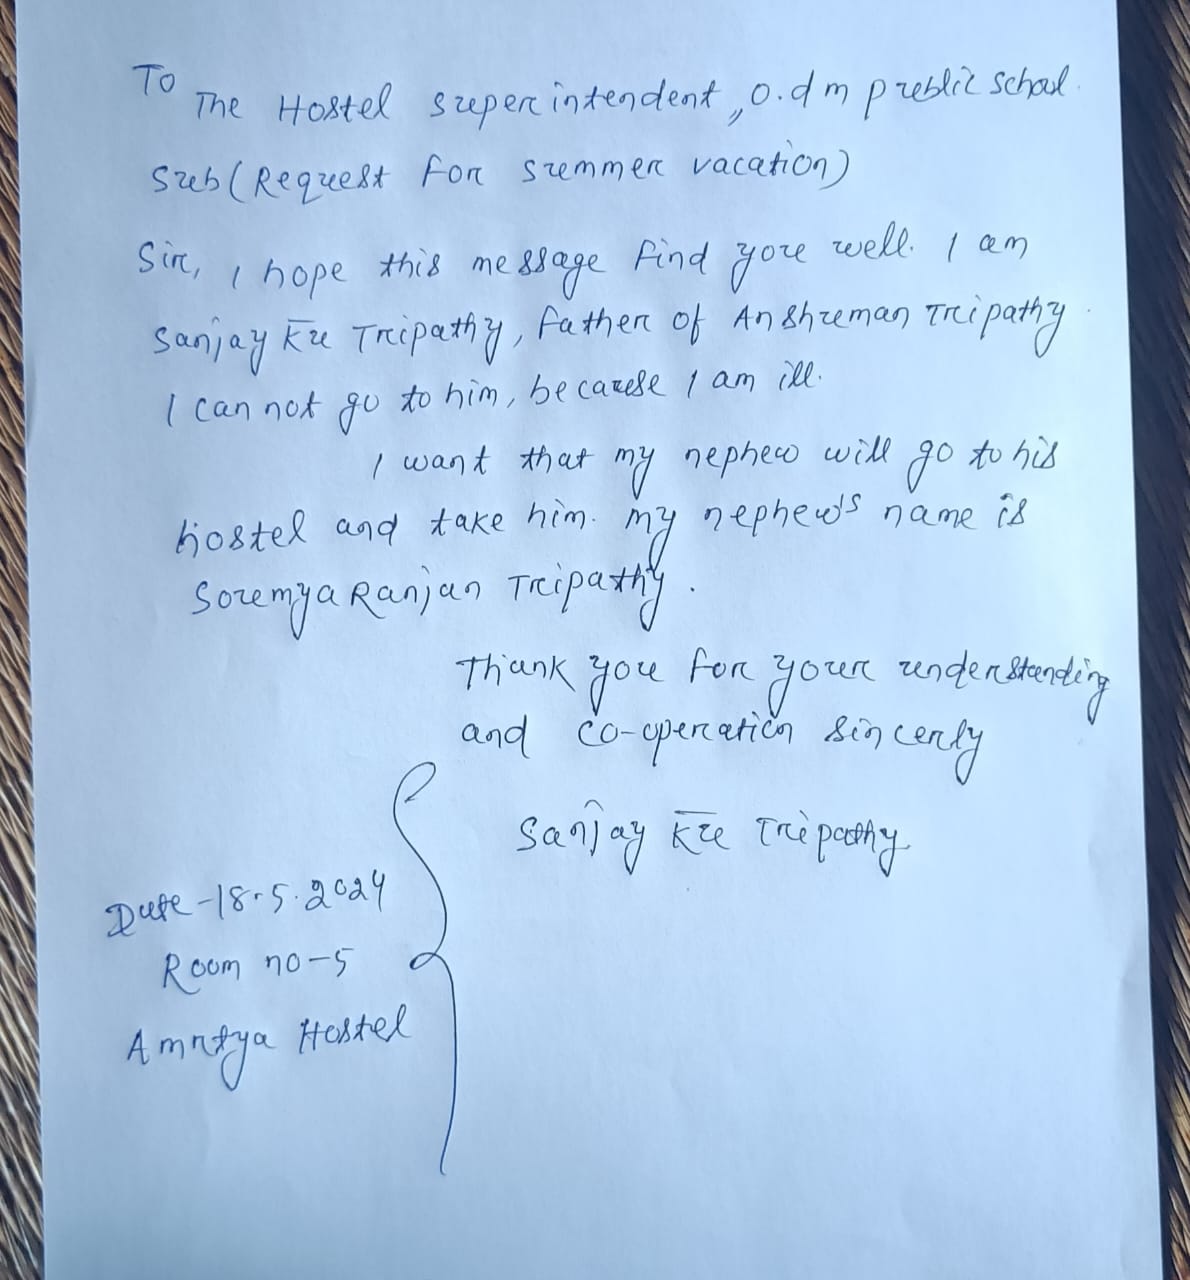 To
The Hostel superintendent, O.d m public school.
Sub (Request for summer vacation)
Sir, I hope this message find you well. I am
Sanjay Ku Tripathy, father of Anshuman Tripathy.
I can not go to him, because I am ill.
I want that my nephew will go to his
hostel and take him. my nephew's name is
Soumya Ranjan Tripathy.
Thank you for your understanding
and co-operation sincerly
Sanjay Ku Tripathy
Date - 18.5.2024
Room no - 5
Amrtya Hostel